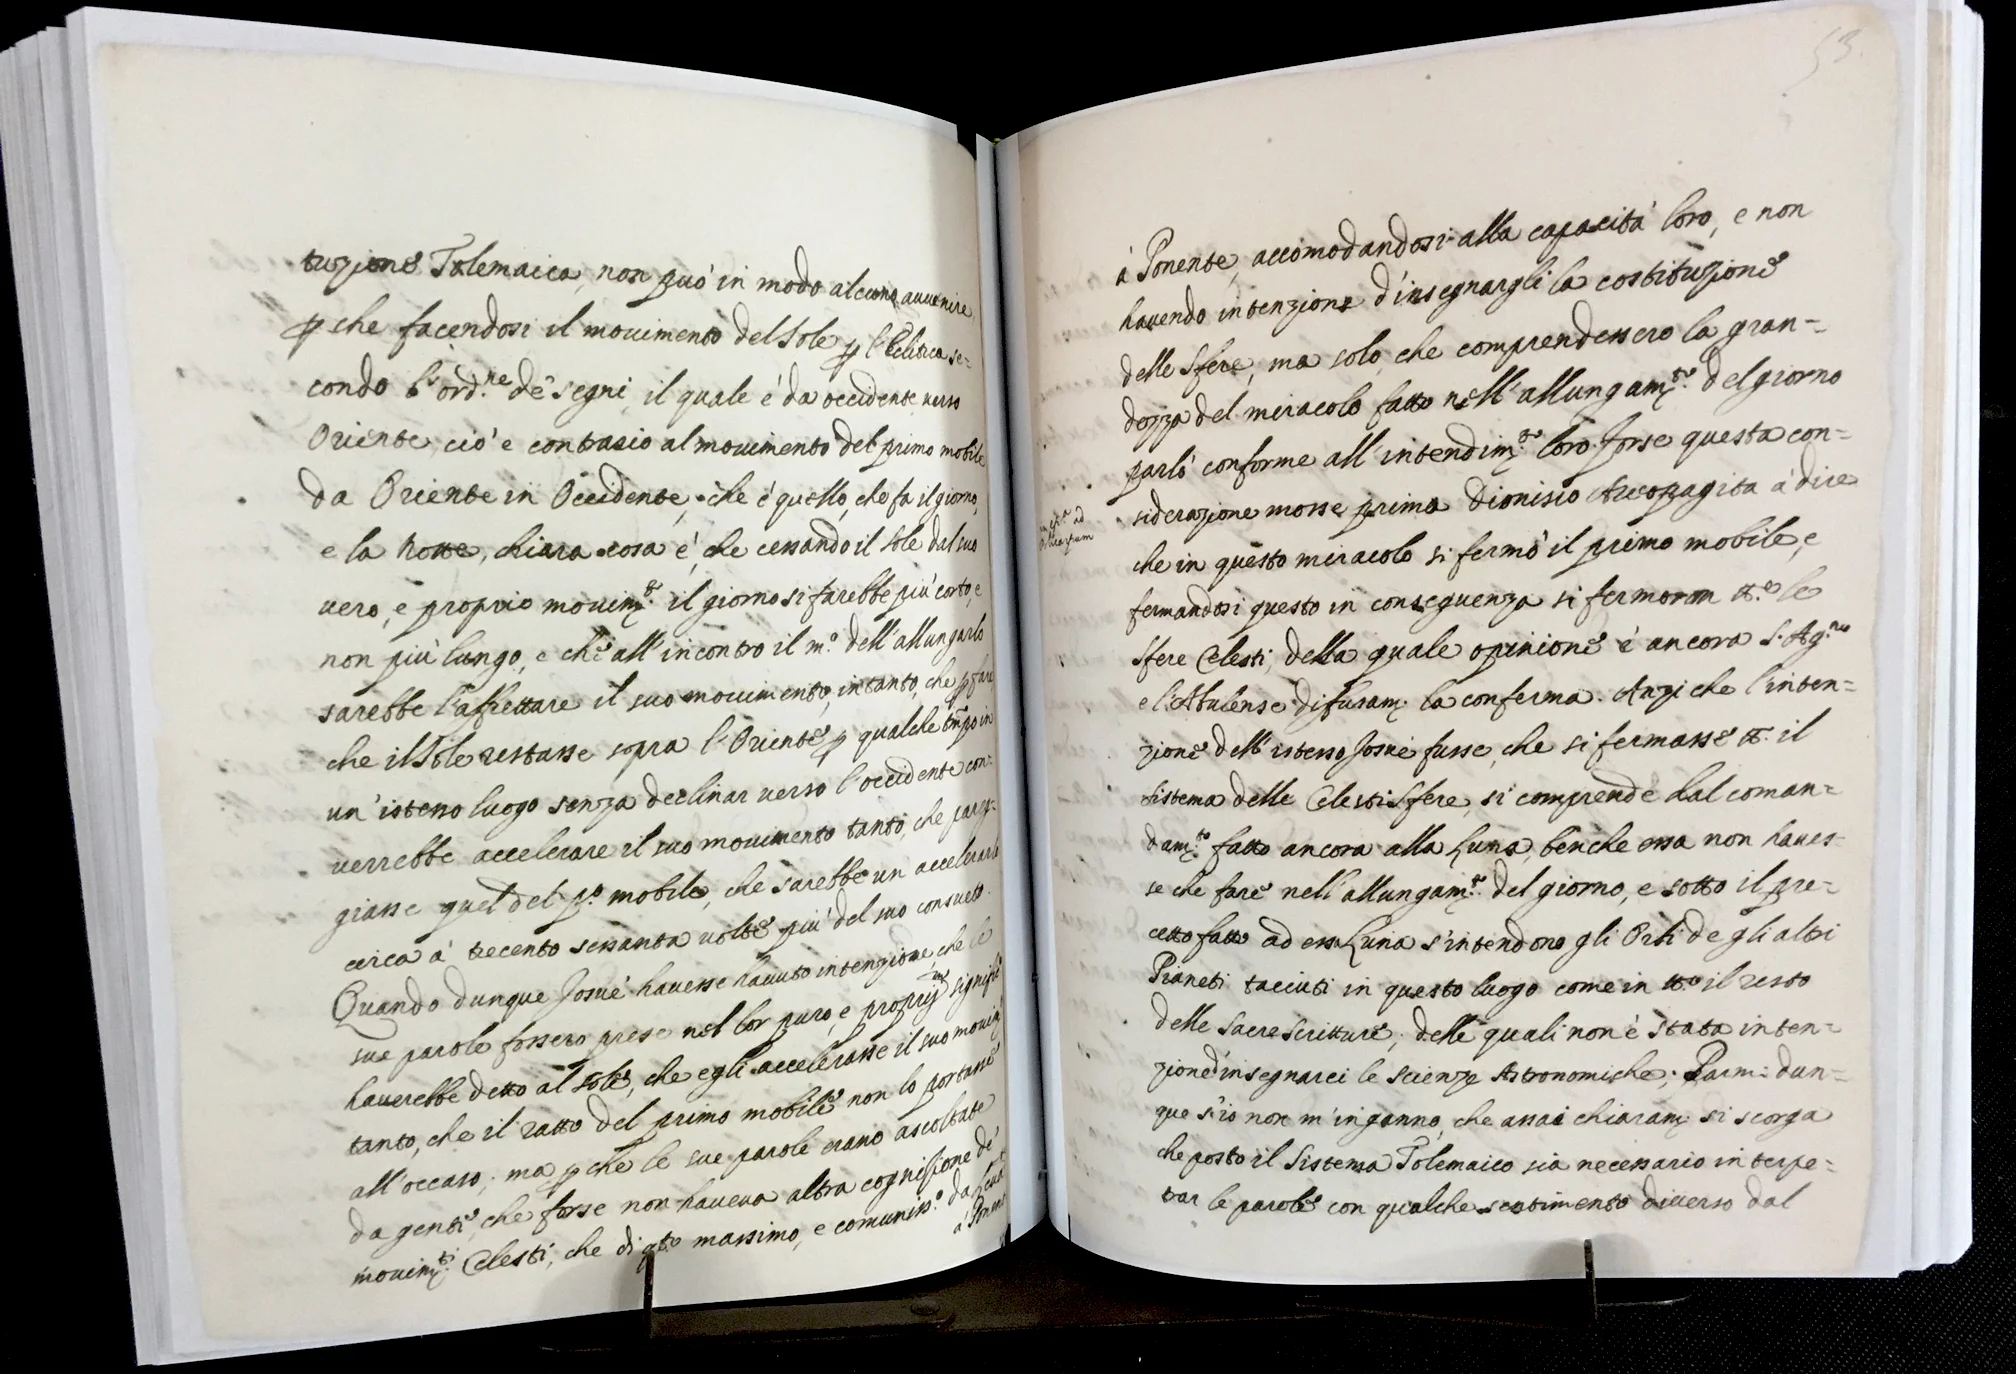 tuzione Tolemaica, non può in modo alcuno auuenire,
p che facendosi il mouimento del Sole p l'Eclitica se=
condo l'ord.ne de segni, il quale è da occidente uerso
Oriente, ciò è contrario al mouimento del primo mobile
da Oriente in Occidente, che è quello, che fa il giorno,
e la Notte, chiara cosa è, che cessando il Sole dal suo
uero, e proprio mouim.to il giorno si farebbe più corto, e
non più lungo, e che all'incontro il m.o dell'allungarlo
sarebbe l'affrettare il suo mouimento, intanto, che p fare,
che il Sole restasse sopra l'Oriente p qualche tmpo in
un'istesso luogo senza declinar uerso l'occidente con=
uerrebbe accelerare il suo mouimento tanto, che pareg=
giasse quel del p.o mobile, che sarebbe un accelerarlo
circa à trecento sessanta uolte più del suo consueto.
Quando dunque Josuè hauesse hauuto intenzione, che le
sue parole fossero prese nel lor puro, e proprijmo signific
hauerebbe detto al Sole, che egli accelerasse il suo mouim
tanto, che il ratto del primo mobile non lo portasse
all'occaso; ma p che le sue parole erano ascoltate
da gente, che forse non haueua altra cognizione de'
mouim.ti Celesti, che di q.to massimo, e comuniss.o da Leuante
à Ponente
53.
à Ponente, accomodandosi alla capacità loro, e non
hauendo intenzione d'insegnargli la costituzione
delle Sfere, ma solo, che comprendessero la gran=
dezza del miracolo fatto nell'allungam.to del giorno
parlò conforme all'intendim.to loro. Forse questa con=
siderazione mosse prima Dionisio Areopagita à dire
ad
che in questo miracolo si fermò il primo mobile, e
fermandosi questo in conseguenza si fermoron tt.e le
Sfere Celesti, della quale opinione è ancora S. Ag.no
e l'Abulense difusam. la conferma. Anzi che l'inten=
zione dell'istesso Josuè fusse, che si fermasse tt. il
sistema delle Celesti Sfere, si comprende dal coman=
dam.to fatto ancora alla Luna, benche essa non haues=
se che fare nell'allungam.to del giorno, e sotto il pre=
cetto fatto ad essa Luna s'intendono gli Orbi de gli altri
Pianeti tacciuti in questo luogo come in tt.o il resto
delle Sacre Scritture, delle quali non è stata inten=
zione d'insegnarci le scienze Astronomiche; Parmi dun=
que s'io non m'inganno, che assai chiaram. si scorga
che posto il Sistema Tolemaico sia necessario interpe=
trar le parole con qualche sentimento diuerso dal